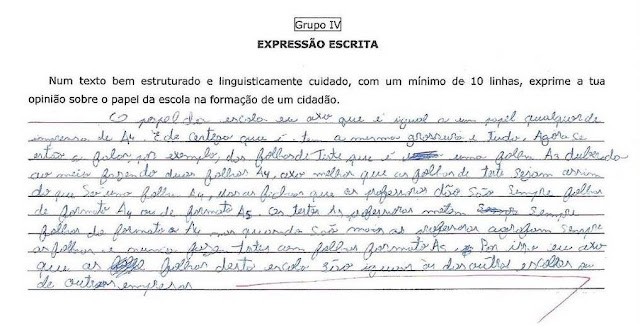 Grupo IV
EXPRESSÃO ESCRITA
Num texto bem estruturado e linguisticamente cuidado, com um mínimo de 10 linhas, exprime a tua
opinião sobre o papel da escola na formação de um cidadão.
O papel da escola eu axo que é igual a um papel qualquer de
impresora de A4. E de certeza que é. tem a mesma grossura e tudo. Agora se
estão a falar por exemplo, das folhas de Teste que é uma folha A3 dobrada
ao meio fazendo duas folhas A4, axo melhor que as folhas de teste sejam assim
do que ser uma folha A4, fichas que os professores dão São Sempre folhas
de formato A4 ou de formato A5. Os testes os professores metem Sempre
folhas de formato A4 mas quando São mais os professores agrafam Sempre
as folhas e nunca fazem Testes com folhas formato A5. Por isso eu axo
que as folhas desta escola são iguais às das outras escolas ou
de outras empresas